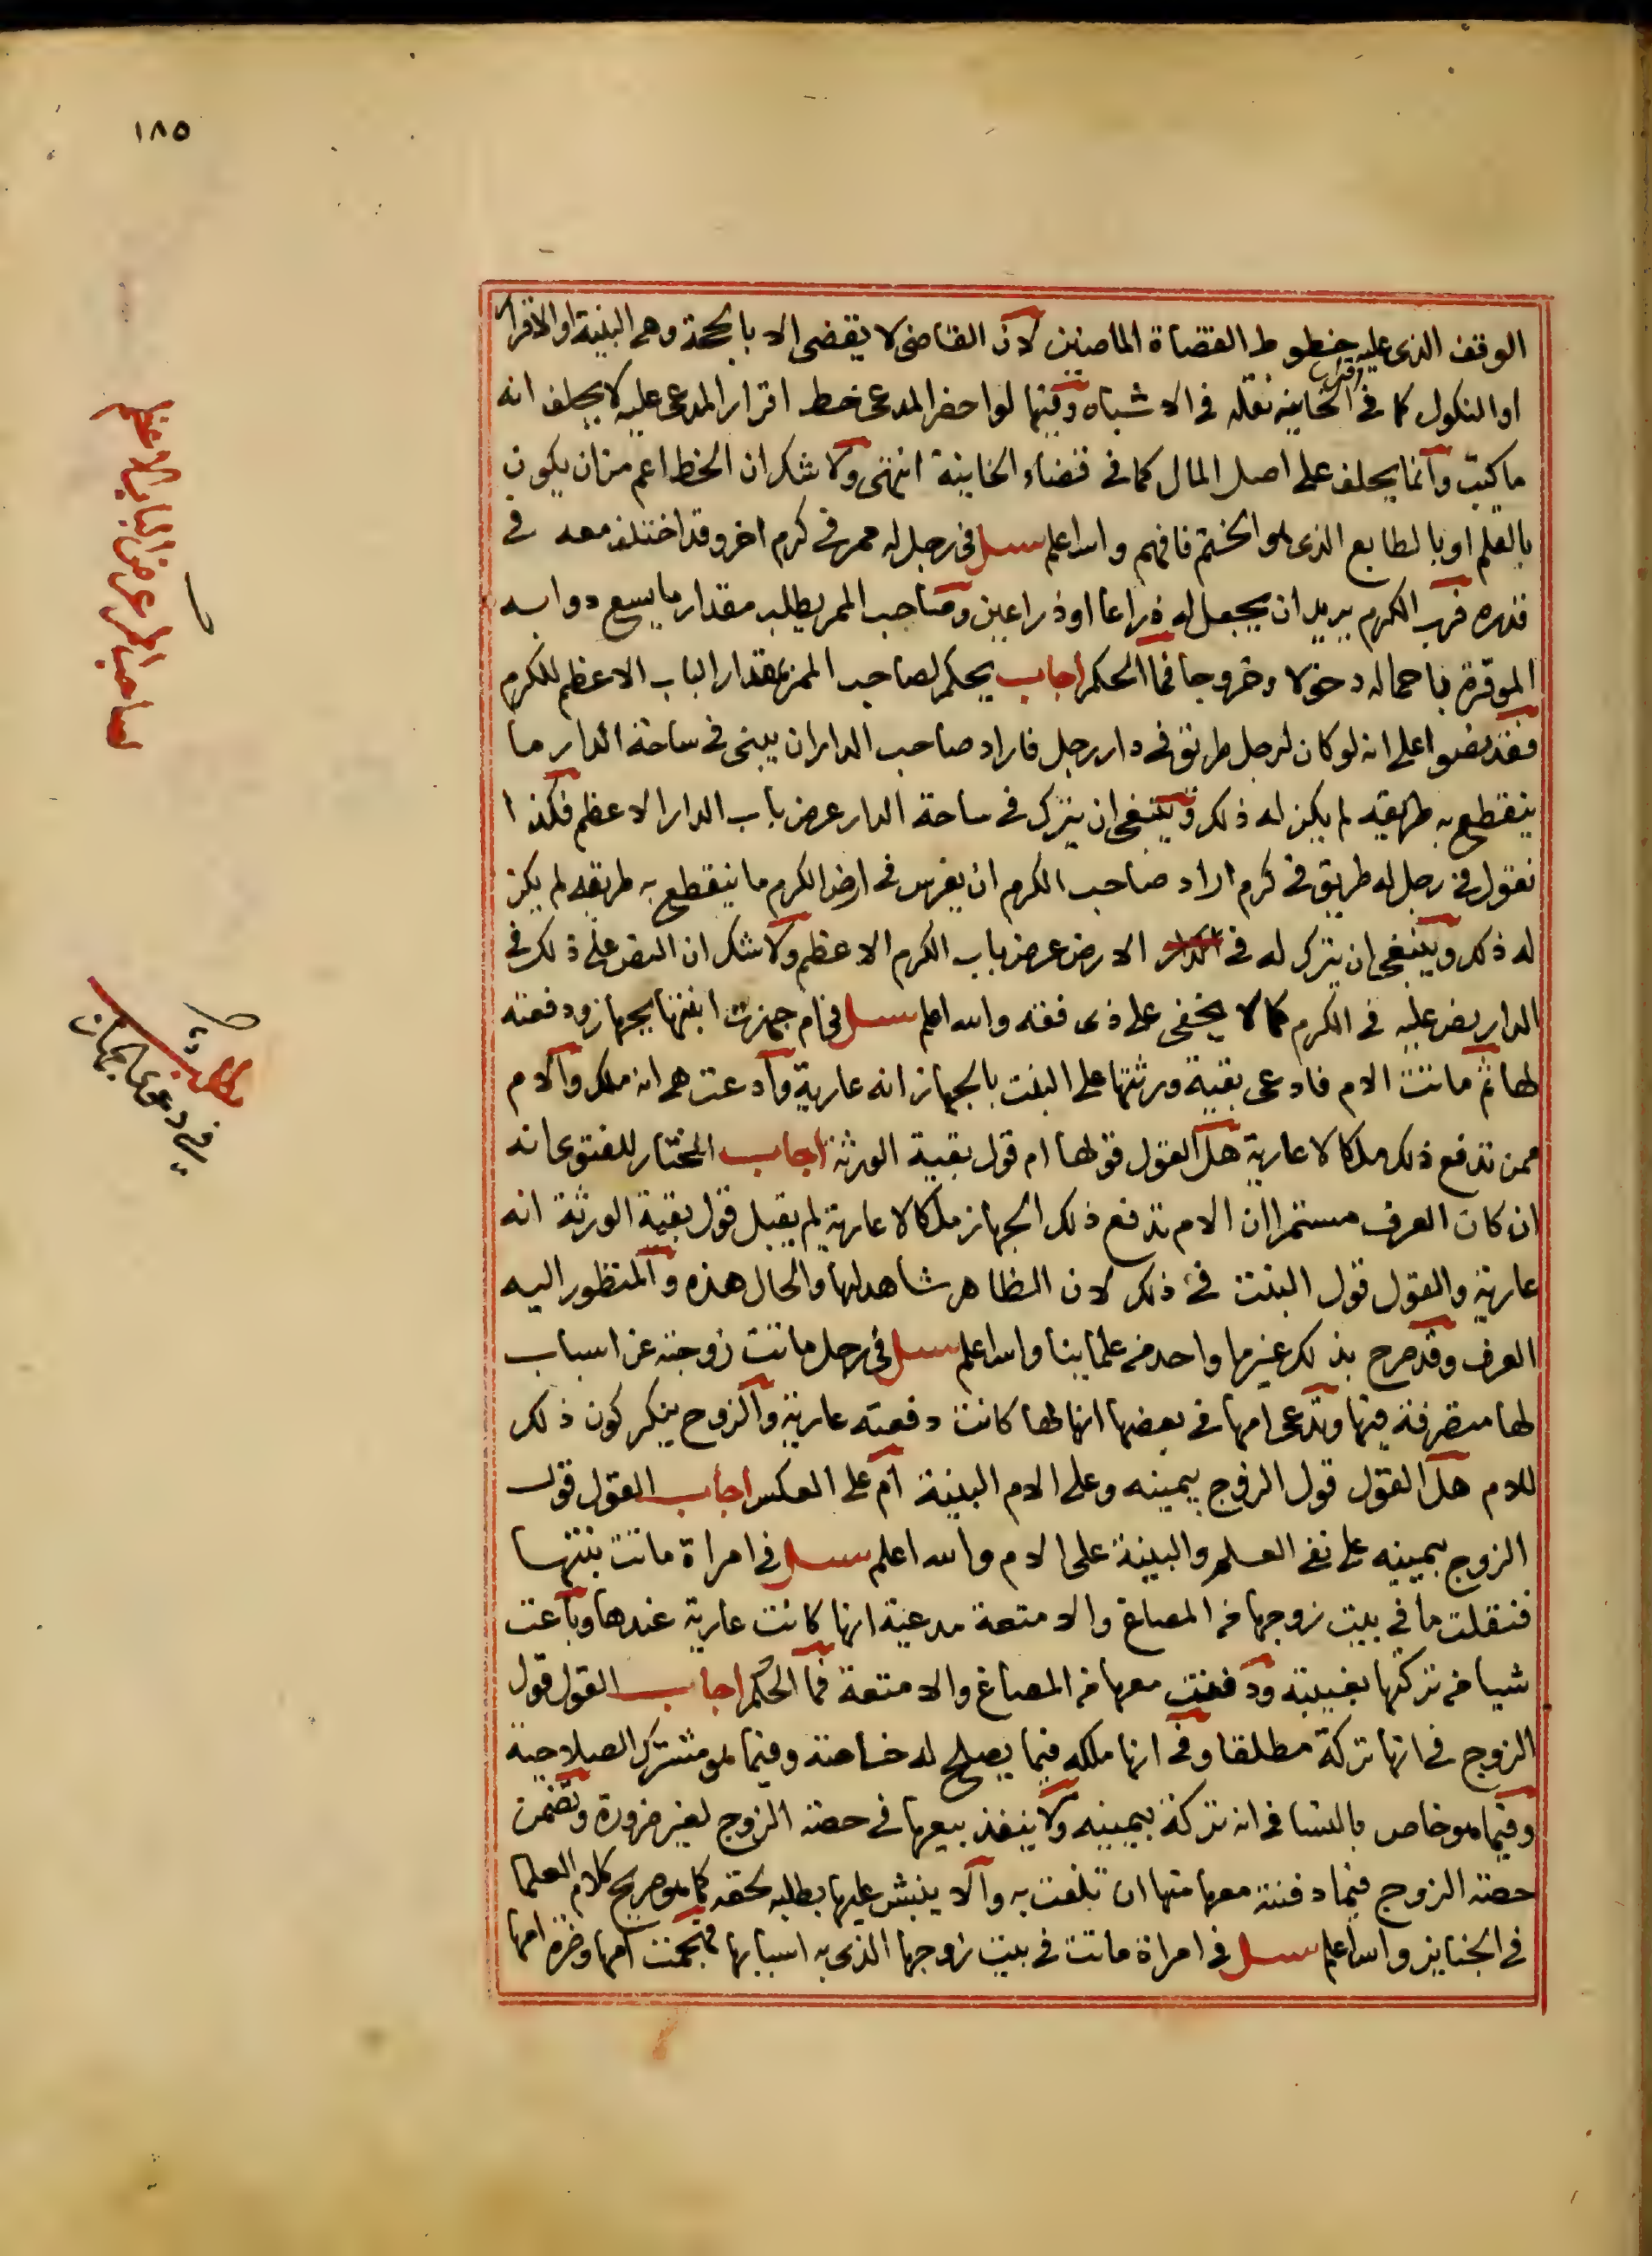 ١٨٥
الوقف الذى عليه خطوط القضاة الماضين لان القاضى لا يقضى الا بالحجة وهى البينة او الاقرار
او النكول كما فى اقرار الخانية نقله فى الاشباه وفيها لو احضر المدعى خط اقرار المدعى عليه لا يحلف انه
ما كتب وانما يحلف على اصل المال كما فى قضاء الخانية انتهى ولا شك ان الخط اعم من ان يكون
بالقلم او بالطابع الذى هو الختم فافهم والله اعلم سئل فى رجل له ممر فى كرم اخر وقد اختلف معه فى
قدره فرب الكرم يريد ان يجعل له ذراعا او ذراعين وصاحب الممر يطلب مقدار ما يسع دوابه
الموقرة باحماله دخولا وخروجا فما الحكم اجاب يحكم لصاحب الممر بمقدار الباب الاعظم للكرم
فقد نصوا على انه لو كان لرجل طريق فى دار رجل فاراد صاحب الدار ان يبنى فى ساحة الدار ما
ينقطع به طريقه لم يكن له ذلك وينبغى ان يترك فى ساحة الدار عرض باب الدار الاعظم فكذا
نقول فى رجل له طريق فى كرم اراد صاحب الكرم ان يغرس فى ارض الكرم ما ينقطع به طريقه لم يكن
له ذلك وينبغى ان يترك له فى الارض عرض باب الكرم الاعظم ولا شك ان النص على ذلك فى
الدار نص عليه فى الكرم كما لا يخفى على ذى فقه والله اعلم سئل فى ام جهزت ابنتها بجهاز ودفعته
لها ثم ماتت الام فادعى بقية ورثتها على البنت بالجهاز انه عارية وادعت هى انه ملك والام
ممن تدفع ذلك ملكا لا عارية هل القول قولها ام قول بقية الورثة اجاب المختار للفتوى انه
ان كان العرف مستمرا ان الام تدفع ذلك الجهاز ملكا لا عارية لم يقبل قول بقية الورثة انه
عارية والقول قول البنت فى ذلك لان الظاهر شاهد لها والحال هذه والمنظور اليه
العرف وقد صرح بذلك غير ما واحد من علماينا والله اعلم سئل فى رجل ماتت زوجته عن اسباب
لها متصرفة فيها وتدعى امها فى بعضها انها لها كانت دفعته عارية والزوج ينكر كون ذلك
للام هل القول قول الزوج بيمينه وعلى الام البينة ام على العكس اجاب القول قول
الزوج بيمينه على نفى العلم والبينة على الام والله اعلم سئل فى امراة ماتت بنتها
فنقلت ما فى بيت زوجها من المصاغ والامتعة مدعية انها كانت عارية عندها وباعت
شيا من تركتها بغيبته ودفنت معها من المصاغ والامتعة فما الحكم اجاب القول قول
الزوج فى انها تركة مطلقا وفى انها ملكه فيما يصلح له خاصة وفيما هو مشترك الصلاحية
وفيما هو خاص بالنسا فى انه تركة بيمينه ولا ينفذ بيعها فى حصة الزوج لغير ضرورة وتضمن
حصة الزوج فيما دفنته معها منها ان تلفت به والا ينبش عليها بطلبه لحقه كما هو صريح كلام العلما
فى الجنايز والله اعلم سئل فى امراة ماتت فى بيت زوجها الذى به اسبابها فهجمت امها وضرة امها
لصاحب الممر عرض الباب الاعظم
مطلب
فى دعوى الجهاز